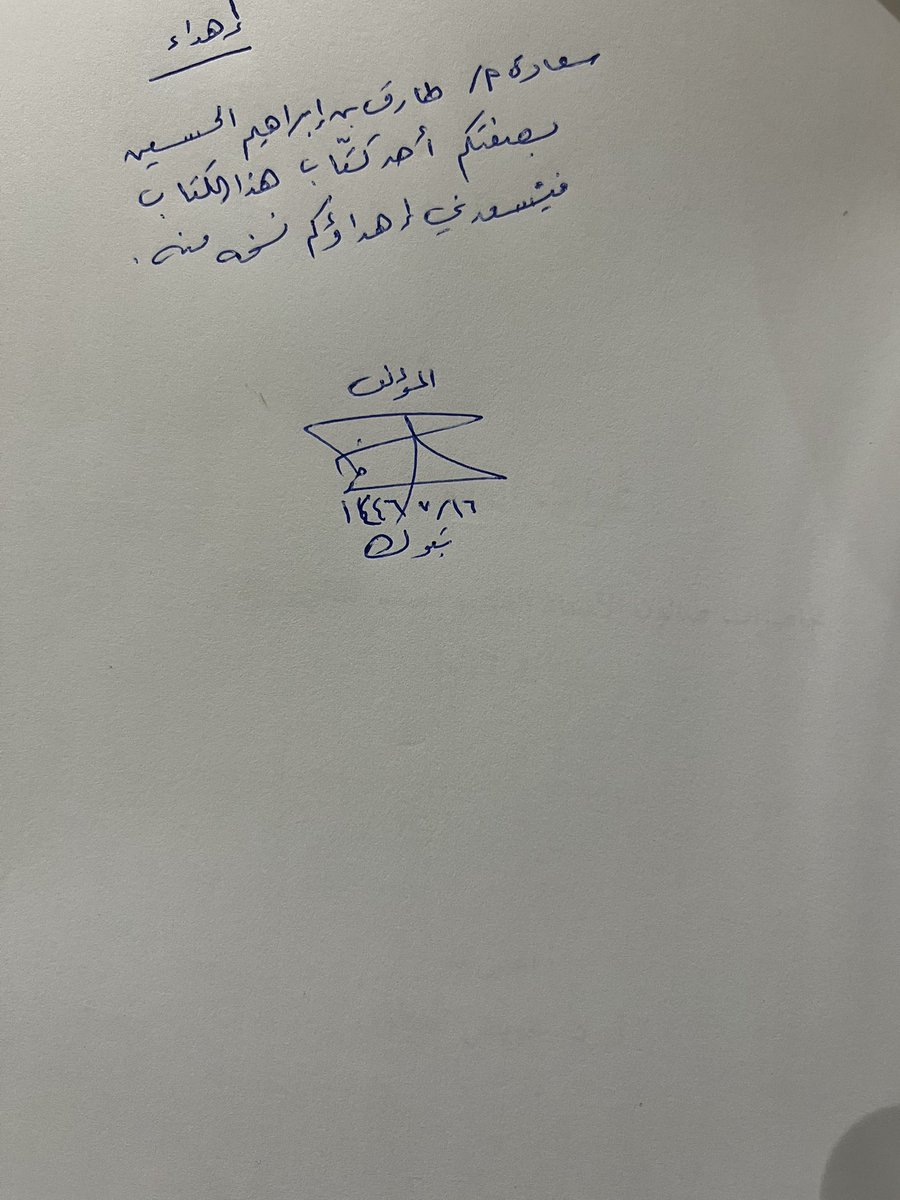 إهداء
سعادة م/ طارق بن إبراهيم الحسين
بصفتكم أحد كتّاب هذا الكتاب
فيسعدني إهداؤكم نسخه منه .
المؤلف
١٤٤٦/٧/١٦
تبوك